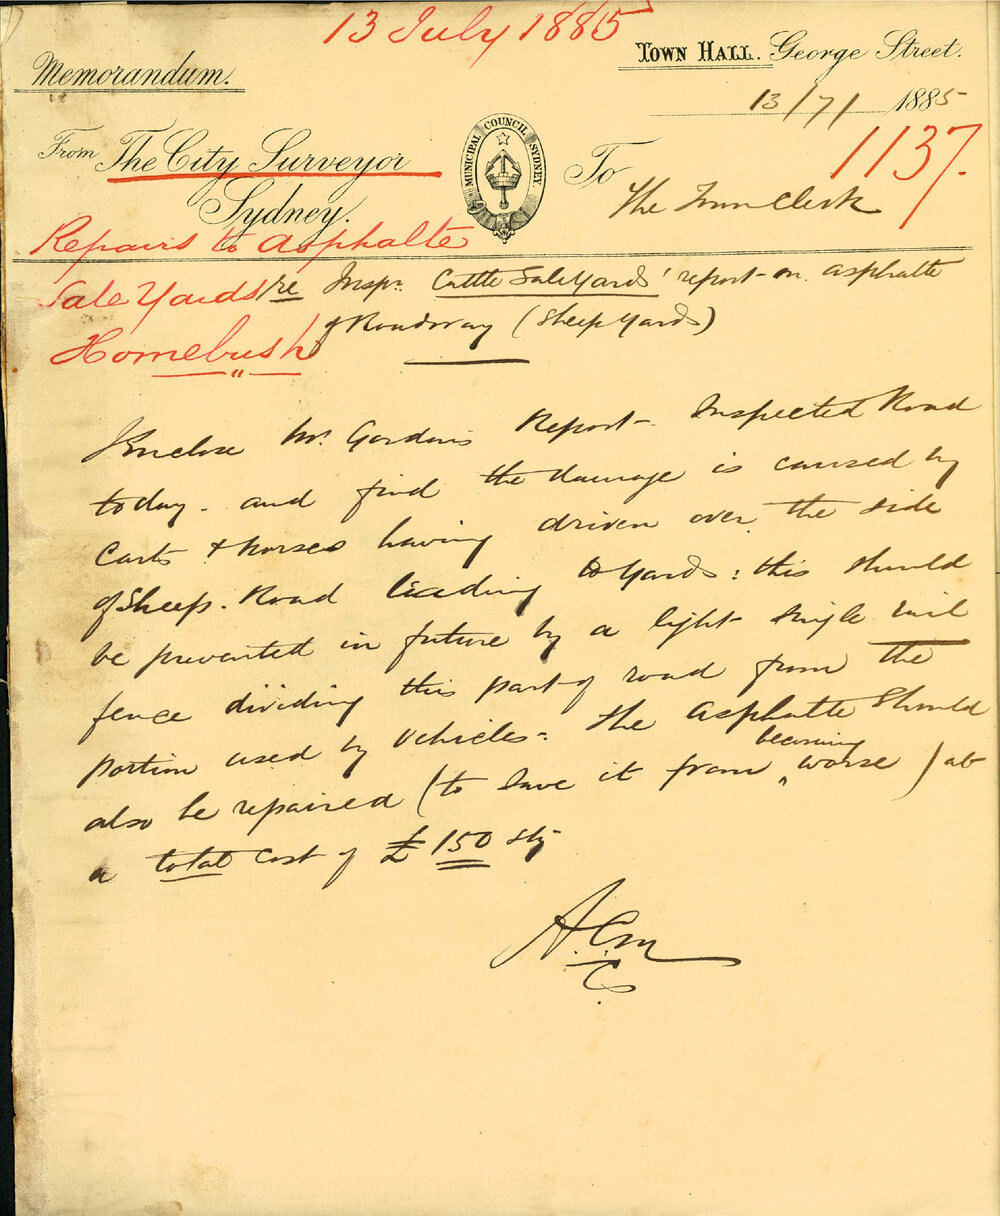 13 July 1885
Town Hall. George Street.
Memorandum.
13/7/ 1885
1137.
From The City Surveyor
Sydney.
MUNICIPAL COUNCIL SYDNEY
To
The Town Clerk
Repairs to asphalte
Sale Yards
Homebush
re Inspr. Cattle SaleYards' report on asphalte
of Roadway (Sheep Yards)
I Enclose Mr. Gordon's Report - Inspected Road
today - and find the damage is caused by
Carts & horses having driven over the side
of Sheep. Road leading to Yards: this should
be prevented in future by a light single rail
fence dividing this part of road from the
portion used by vehicles - the asphalte should
also be repaired (to save it from becoming worse) at
a total cost of £150 Stg